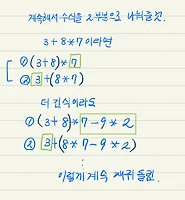 계속해서 수식을 2부분으로 나눠줄것.
3+8*7 이라면
①(3+8)*7
②3+(8*7)
더 긴식이라도
①(3+8)*7-9*2
②3+(8*7-9*2)
⋮
이렇게 계속 재귀 돌린.